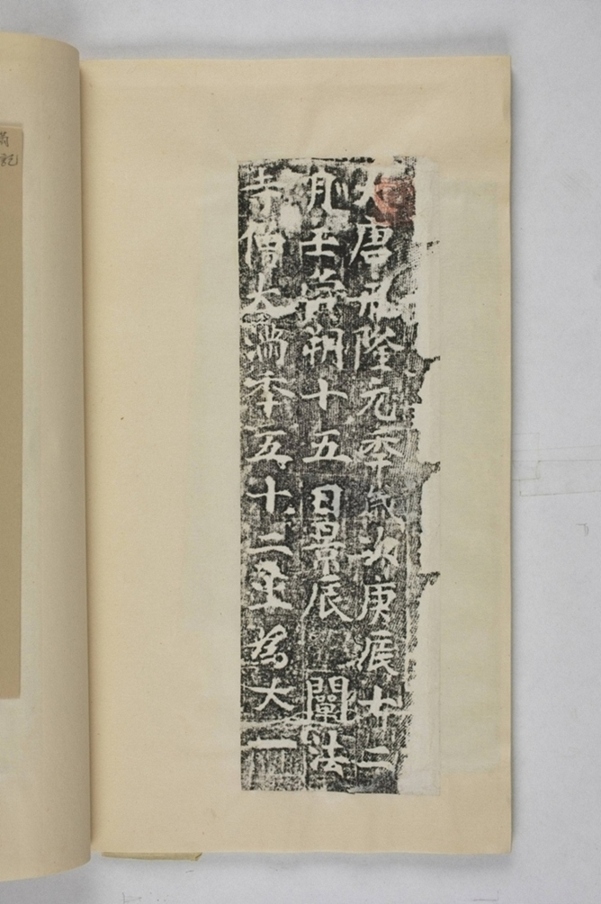 大唐永隆元年歲次庚辰十二
月壬寅朔十五日景辰 闡法
寺僧大滿年五十二奉為大一